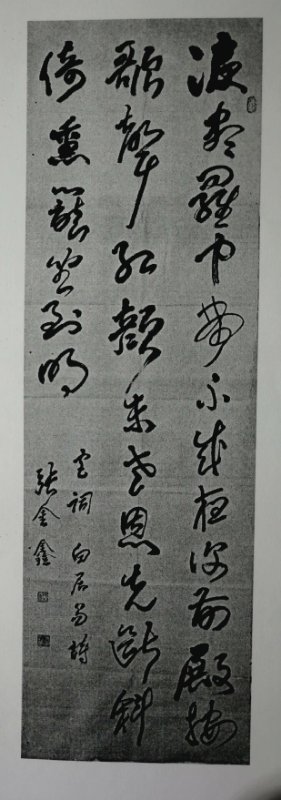 淚盡羅巾夢不成夜深前殿按
歌聲紅顏未老恩先斷斜
倚熏籠坐到明
宮詞 白居易詩
張金鑫